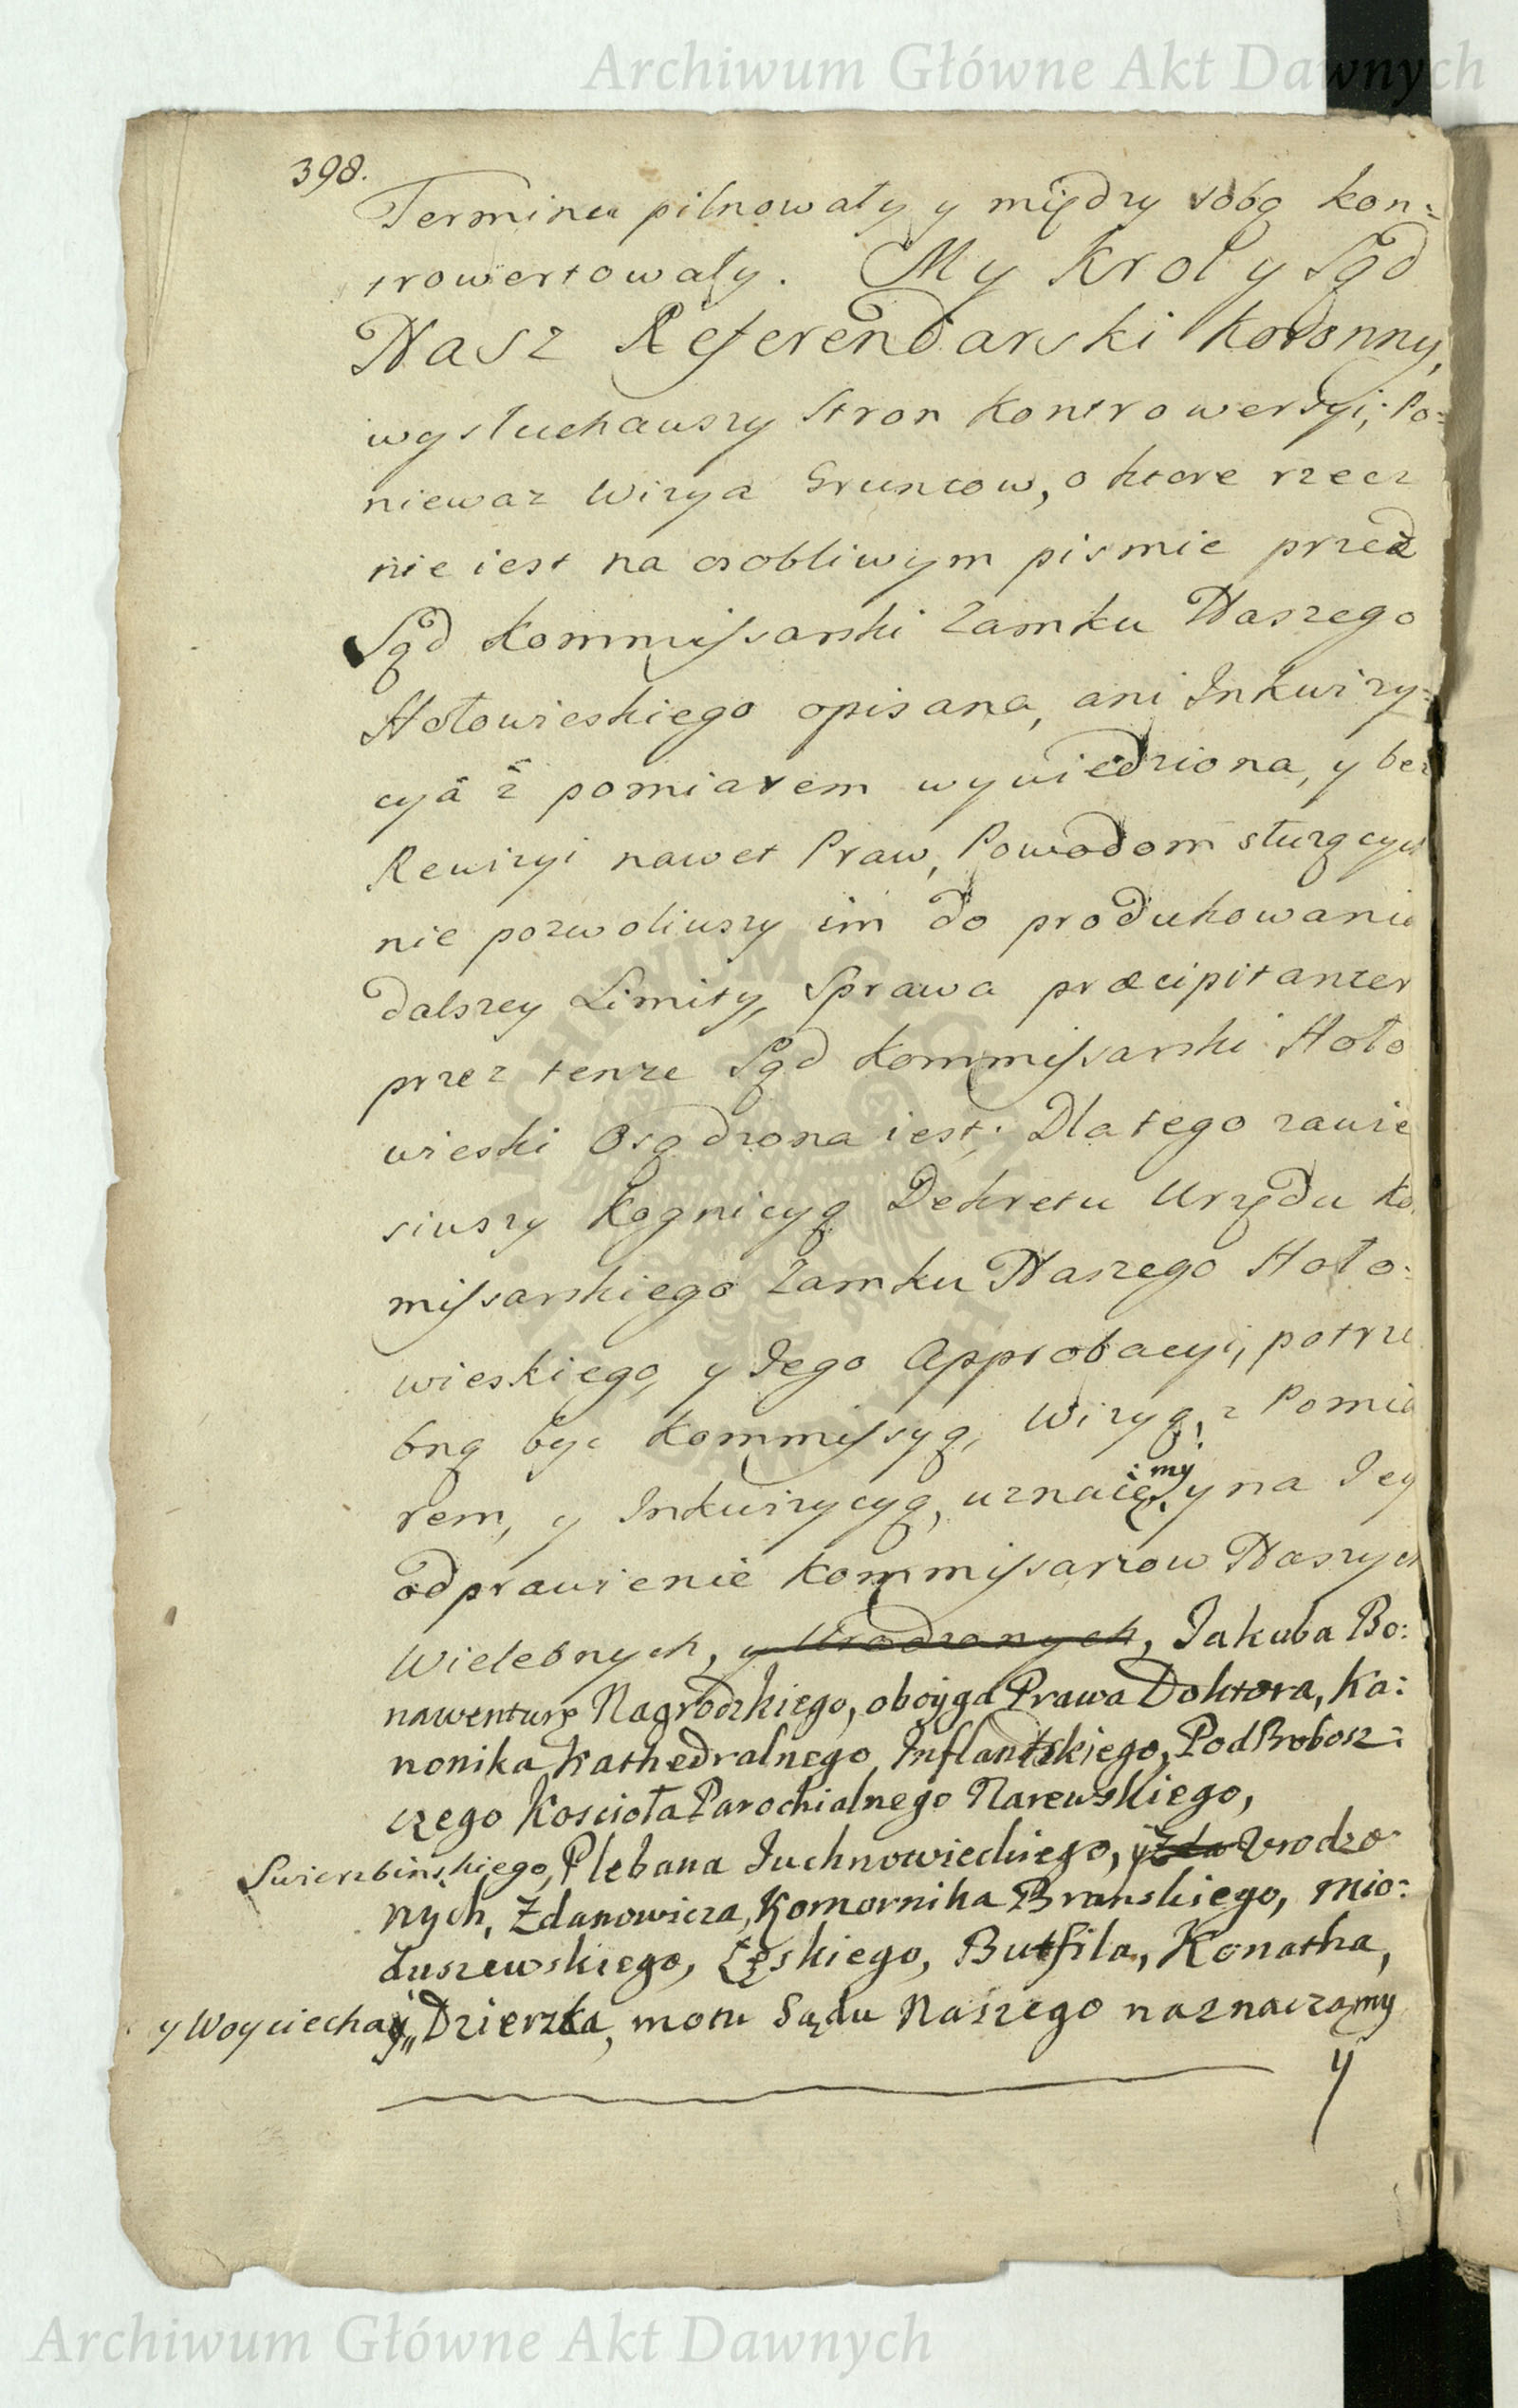 Archiwum Główne Akt Dawnych
398.
Terminu pilnowały y między sobą kon:
trowertowały. My Krol y Sąd
Nasz Referendarski Koronny,
wysłuchawszy Stron Kontrowersyi; Po:
niewaz Wizya Gruntow, o ktore rzecz
nie iest na osobliwym pismie przed
Sąd Kommissarski Zamku Naszego
Hołowieskiego opisana, ani Inkwizy:
cya z pomiarem wywiedziona, y bez
Rewizyi nawet Praw, Powodom służących
nie pozwoliwszy im do produkowania
dalszey Limity, Sprawa præcipitanter
przez tenze Sąd Kommissarski Hoło
wieski Osądzona iest; Dla tego zawie
siwszy Kognicyą Dekretu Urzędu Ko
missarskiego Zamku Naszego Hoło:
wieskiego, y Jego Approbacyi, potrze
bną być Kommissyą, Wizyą, z Pomia
rem, y Inkwizycyą, uznaię :my y na Jey
odprawienie Kommissarzow Naszych
Wielebnych, y Urodzonych, Jakuba Bo:
nawenturę Nagrodzkiego, oboyga Prawa Doktora, Ka:
nonika Kathedralnego Inflantskiego, Pod Brobosz:
czego Koscioła Parochialnego Narewskiego,
Swierzbinskiego, Plebana Juchnowieckiego, y Zda Urodzo
nych, Zdanowicza, Komornika Branskiego, Mio:
duszewskiego, Łęskiego, Butfila, Konatha,
y Woyciecha y,, Dzierzka, motu Sądu Naszego naznaczamy
y
Archiwum Główne Akt Dawnych